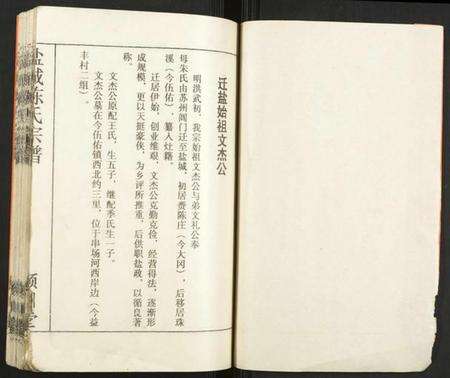 迁盐始祖文杰公
明洪武初,我宗始祖文杰公与弟文礼公奉
母朱氏由苏州阊门迁至盐城,初居费陈庄(今大冈),后移居珠
溪(今伍佑),纂入灶籍。
迁居伊始,创业维艰,文杰公克勤克俭,经营得法,逐渐形
成规模,更以天挺豪侠,为乡评所推重。后供职盐政,以循良著
称。
文杰公原配王氏,生五子,继配季氏生一子。
文杰公墓在今伍佑镇西北约三里,位于串场河西岸边(今益
丰村二组)。
盐城陈氏宗谱